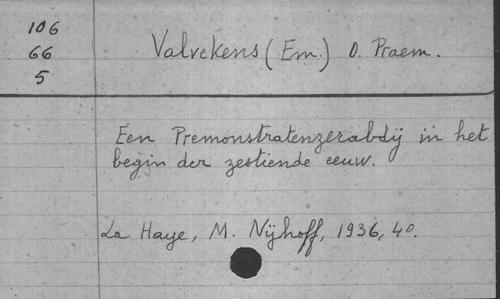 106
66
5
Valvekens (Em.) O. Praem.
Een Premonstratenzerabdij in het
begin der zestiende eeuw.
La Haye, M. Nijhoff, 1936, 4o.